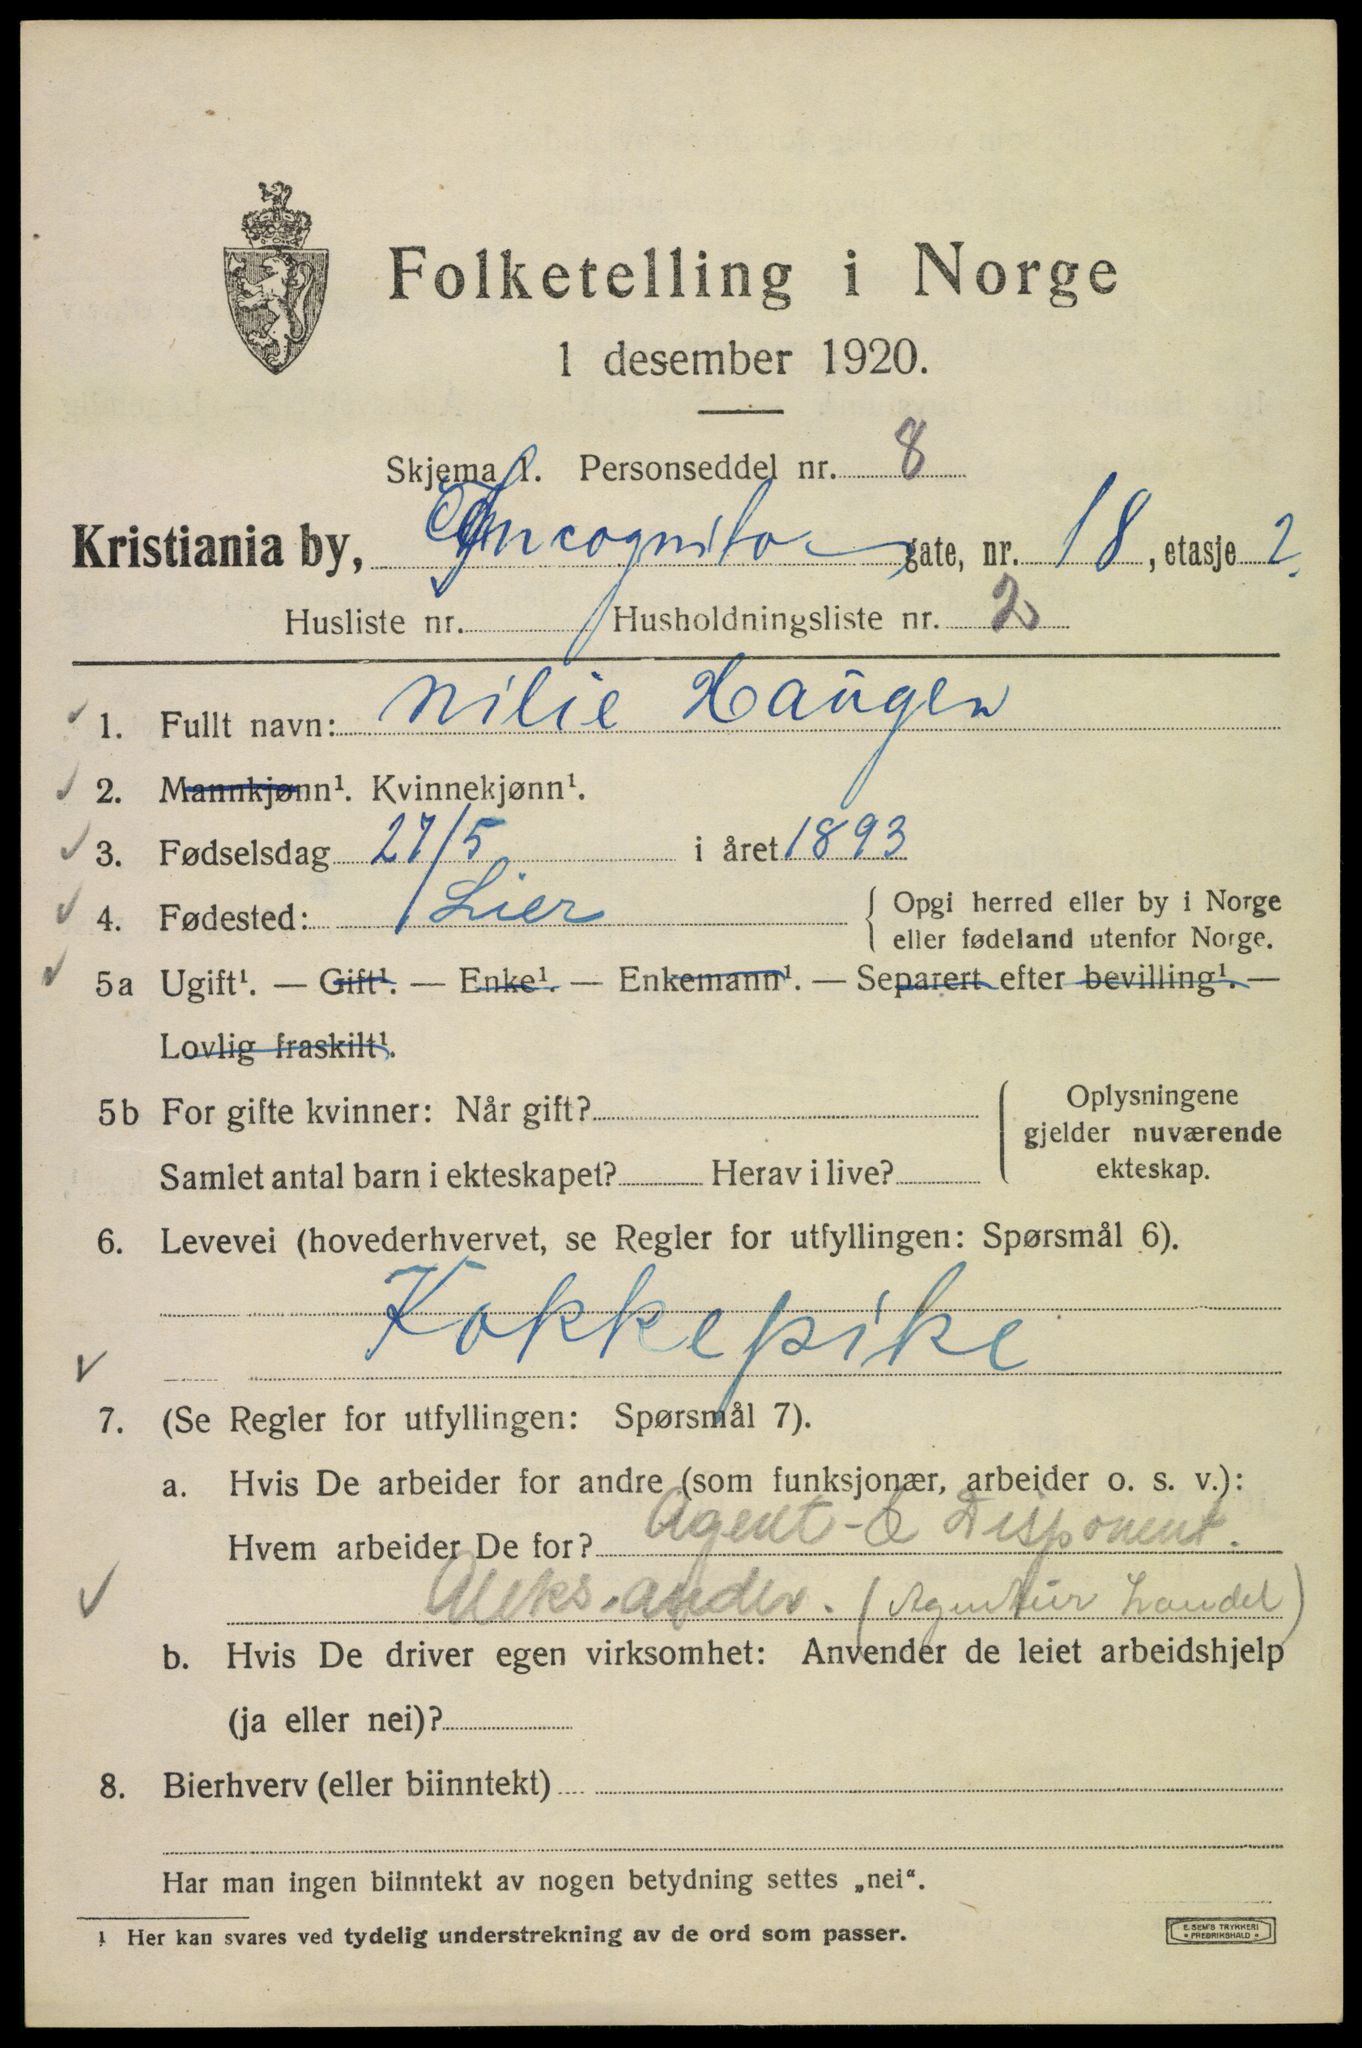 Folketelling i Norge
1 desember 1920.
Skjema 1. Personseddel nr. 8
Kristiania by, Incognito gate, nr. 18, etasje 2.
Husliste nr. Husholdningsliste nr. 2
1. Fullt navn: Nilie Haugen
2. Mannkjønn¹. Kvinnekjønn¹.
3. Fødselsdag 27/5 i året 1893
4. Fødested: Lier
Opgi herred eller by i Norge
eller fødeland utenfor Norge.
5a Ugift¹. — Gift¹. — Enke¹. — Enkemann¹. — Separert efter bevilling¹. —
Lovlig fraskilt¹.
5b For gifte kvinner: Når gift?
Samlet antal barn i ekteskapet? Herav i live?
Oplysningene
gjelder nuværende
ekteskap.
6. Levevei (hovederhvervet, se Regler for utfyllingen: Spørsmål 6).
Kokkepike
7. (Se Regler for utfyllingen: Spørsmål 7).
a. Hvis De arbeider for andre (som funksjonær, arbeider o. s. v.):
Hvem arbeider De for? Agent- & Disponent.
Aleksander. (Agentur handel)
b. Hvis De driver egen virksomhet: Anvender de leiet arbeidshjelp
(ja eller nei)?
8. Bierhverv (eller biinntekt)
Har man ingen biinntekt av nogen betydning settes „nei“.
¹ Her kan svares ved tydelig understrekning av de ord som passer.
E. SEM'S TRYKKERI
* FREDRIKSHALD *